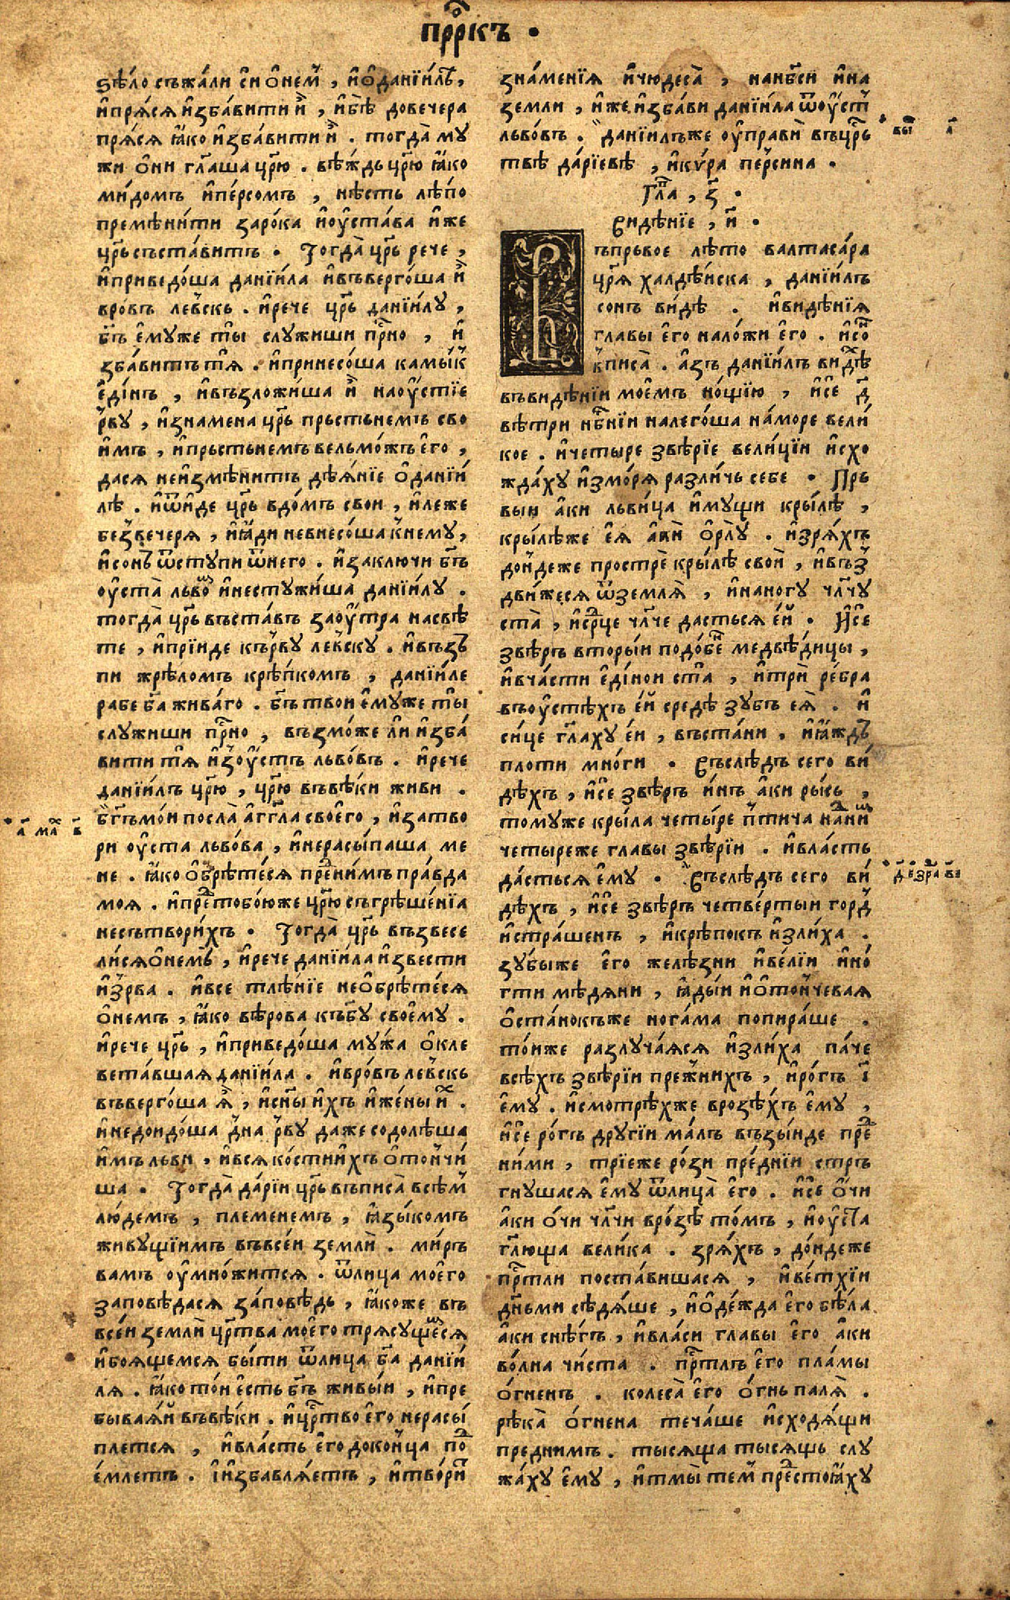 прⷪ҇ркъ .
ѕѣ́ло съжа́ли сѝ ѡ҆не́мⸯ , и҆ѻ҆данїи́лѣ,
и҆прѧ́сѧ и҆зба́вити и҆̀ , и҆бѣ̀ довечера
прѧ́сѧ ꙗ҆́ко и҆зба́вити и҆̀ . тогда̀ му
жи ѻ҆ни гл҃аша цр҃ю . вѣ́ждь цр҃ю ꙗ҆́ко
ми́домъ и҆пе́рсомъ , нѣ́сть лѣ́по
премѣни́ти заро́ка и҆оу҆ста́ва и҆́же
цр҃ь съста́витъ . Тогда̀ цр҃ь рече ,
и҆приведо́ша данїи́ла и҆въверго́ша и҆̀
вро́въ ле́вскъ . и҆рече цр҃ь данїи́лу ,
бг҃ъ є҆му́же ты̀ слу́жиши при́сно , и҆
зба́витъ тѧ . и҆принесо́ша ка́мыкъ
є҆ди́нъ , и҆възложи́ша и҆̀ наоу҆́стїе
рву , и҆зна́мена цр҃ь пръ́стьнемъ сво
и҆мъ , и҆пръ́стьнемъ вельмо́жъ є҆го̀ ,
дасѧ неи҆змѣни́тъ дѣѧ́нїе ѻ҆данїи́
лѣ . и҆ѿи́де цр҃ь вдо́мъ сво́и , и҆ле́же
безвече́рѧ , и҆ꙗ҆́ди невнесо́ша кне́му ,
и҆со́нъ ѿступи ѿнего . и҆заключи бг҃ъ
оу҆ста̀ льво́мъ и҆нестужи́ша данїи́лу .
тогда̀ цр҃ь въста́въ заоу҆́тра насвѣ́
те , и҆прїи́де кърву ле́вску . и҆възъ
пи жрѣ́ломъ крѣ́пкомъ , данїи́ле
рабе бг҃а жива́го . бг҃ъ твои є҆му́же ты̀
слу́жиши при́сно , възмо́же ли и҆зба́
вити тѧ и҆зоу҆́стъ льво́въ . и҆рече
данїи́лъ цр҃ю , цр҃ю въвѣ́ки живи .
бг҃ъ мо́и посла̀ а҆́гг҃ла своего , и҆затво
ри оу҆ста льво́ва , и҆нерасы́паша ме
не . ꙗ҆́ко ѻ҆брѣ́тесѧ преⷣни́мъ пра́вда
моѧ . и҆преⷣтобо́юже цр҃ю съгрѣше́нїа
несътвори́хъ . Тогда̀ цр҃ь възвесе
ли́сѧ ѻ҆не́мъ , и҆рече данїи́ла и҆звести
и҆зрва . и҆все тлѣ́нїе неѻ҆брѣ́тесѧ
ѻ҆не́мъ , ꙗ҆́ко вѣ́рова къбг҃у своє҆му .
и҆рече цр҃ь , и҆приведо́ша му́жа ѻ҆кле
вета́вшаѧ данїи́ла . и҆вро́въ ле́вскъ
въверго́ша ѧ҆̀ , и҆сн҃ы и҆́хъ и҆же́ны и҆́хъ .
и҆недоидо́ша дна рву да́же содолѣ́ша
и҆мъ льви , и҆всѧ ко́сти и҆́хъ ѻ҆тончи́
ша . Тогда̀ да́рїи цр҃ь въписа̀ всѣ́мⸯ
лю́демъ , племенемъ , ꙗ҆зы́комъ
живу́щїимъ въвсе́и землѝ . ми́ръ
вамъ оу҆мно́житсѧ . ѿлица мо́его
заповѣ́дасѧ за́повѣдь , ꙗ҆́коже въ
все́и землѝ црⷭ҇тва моего трѧсу́щемсѧ
и҆боѧщемсѧ бы́ти ѿлица бг҃а данїи́
лѧ . ꙗ҆́ко то́и є҆́сть бг҃ъ живы́и , и҆пре
быва́ѧи въвѣ́ки . и҆црⷭ҇тво є҆го нерасы́
плетсѧ , и҆вла́сть є҆го доконца поⷣ
е́млетъ . і҆ и҆збавлѧ́етъ , и҆твори́тъ
зна́менїѧ и҆чюдеса̀ , нанб҃си и҆на
земли , и҆́же и҆зба́ви данїи́ла ѿоу҆́стъ
льво́въ . Данїи́лъже оу҆правѝ въцрⷭ҇ь
твѣ̀ да́рїевѣ , и҆кѵ́ра пе́рсина .
Глⷡ҇а , з҃ .
Видѣ́нїе , и҃ .
Въпръвое лѣ́то валтаса́ра
цр҃ѧ халдѣ́иска , данїи́лъ
сонъ ви́дѣ . и҆видѣ́нїѧ
главы є҆го нало́жи є҆го . и҆со́нъ
въписа̀ . а҆́зъ данїи́лъ ви́дѣхъ
въвидѣ́нїи моемъ но́щїю , и҆се д҃
вѣ́три нбⷭ҇нїи налего́ша на́море вели́
кое . и҆четыре звѣ́рїе вели́цїи и҆схо
жда́ху и҆змо́рѧ разли́чь себе . Пръ
выи а҆́ки льви́ца и҆му́щи кры́лѣ ,
кры́лѣже є҆ѧ а҆́ки ѻ҆рлу̀ . и҆зрѧ́хъ
до́ндеже прострѐ кры́лѣ своѝ , и҆въз
дви́жесѧ ѿземлѧ̀ , и҆нано́гу чл҃чу
ста̀ , и҆срⷣце чл҃че да́стьсѧ є҆́и . И҆се
звѣ́рь вторы́и подо́бенъ медвѣ́дицы ,
и҆вча́сти є҆ди́нои ста , и҆трѝ ре́бра
въоу҆стѣ́хъ є҆́и средѣ̀ зу́бъ є҆ѧ̀ . и҆
си́це гл҃аху є҆́и , въста́ни , и҆ꙗ҆́ждь
пло́ти мно́ги . Въслѣ́дъ сего ви́
дѣхъ , и҆се звѣ́рь и҆нъ а҆́ки ры́сь ,
томуже кры́ла четы́ре пти́ча над ни́мъ
четы́реже главы звѣ́рїи . и҆вла́сть
да́стьсѧ є҆му . Въслѣ́дъ сего ви́
дѣхъ , и҆се звѣ́рь четве́ртыи горд
и҆стра́шенъ , и҆крѣ́покъ и҆зли́ха .
зу́быже є҆го желѣ́зни и҆ве́лїи и҆но́
гти мѣ́дѧни , ꙗ҆ды́и и҆ѻ҆тончеваѧ
ѻ҆ста́нокъже нога́ма попира́ше .
то́иже разлуча́ѧсѧ и҆зли́ха па́че
всѣ́хъ звѣ́рїи пре́жнихъ , и҆ро́гъ і҃
є҆му . и҆смотрѣ́хже врозѣ́хъ є҆му ,
и҆се ро́гъ другі́и ма́лъ възы́иде преⷣ
ни́ми , трїеже ро́зи пре́днїи стръ
гну́шасѧ є҆му ѿлица̀ є҆го . и҆се ѻ҆́чи
а҆́ки ѻ҆́чи чл҃чи вро́зѣ то́мъ , и҆оу҆ста
гл҃юща вели́ка . зрѧ́хъ , до́ндеже
прⷭ҇тли поста́вишасѧ , и҆ве́тхїи
дн҃ьми сѣдѧ́ше , и҆ѻ҆де́жда є҆го бѣ́ла
а҆́ки снѣ́гъ , и҆вла́си главы є҆го а҆́ки
во́лна чи́ста . прⷭ҇тлъ є҆го пла́мы
ѻ҆́гненъ . колеса̀ є҆го ѻ҆́гнь палѧ̀ .
рѣ́ка̀ ѻ҆́гнена теча́ше и҆сходѧ́щи
преднимъ . ты́сѧща ты́сѧщь слу
жа́ху є҆му , и҆тмы̀ темъ преⷣстоꙗ҆́ху